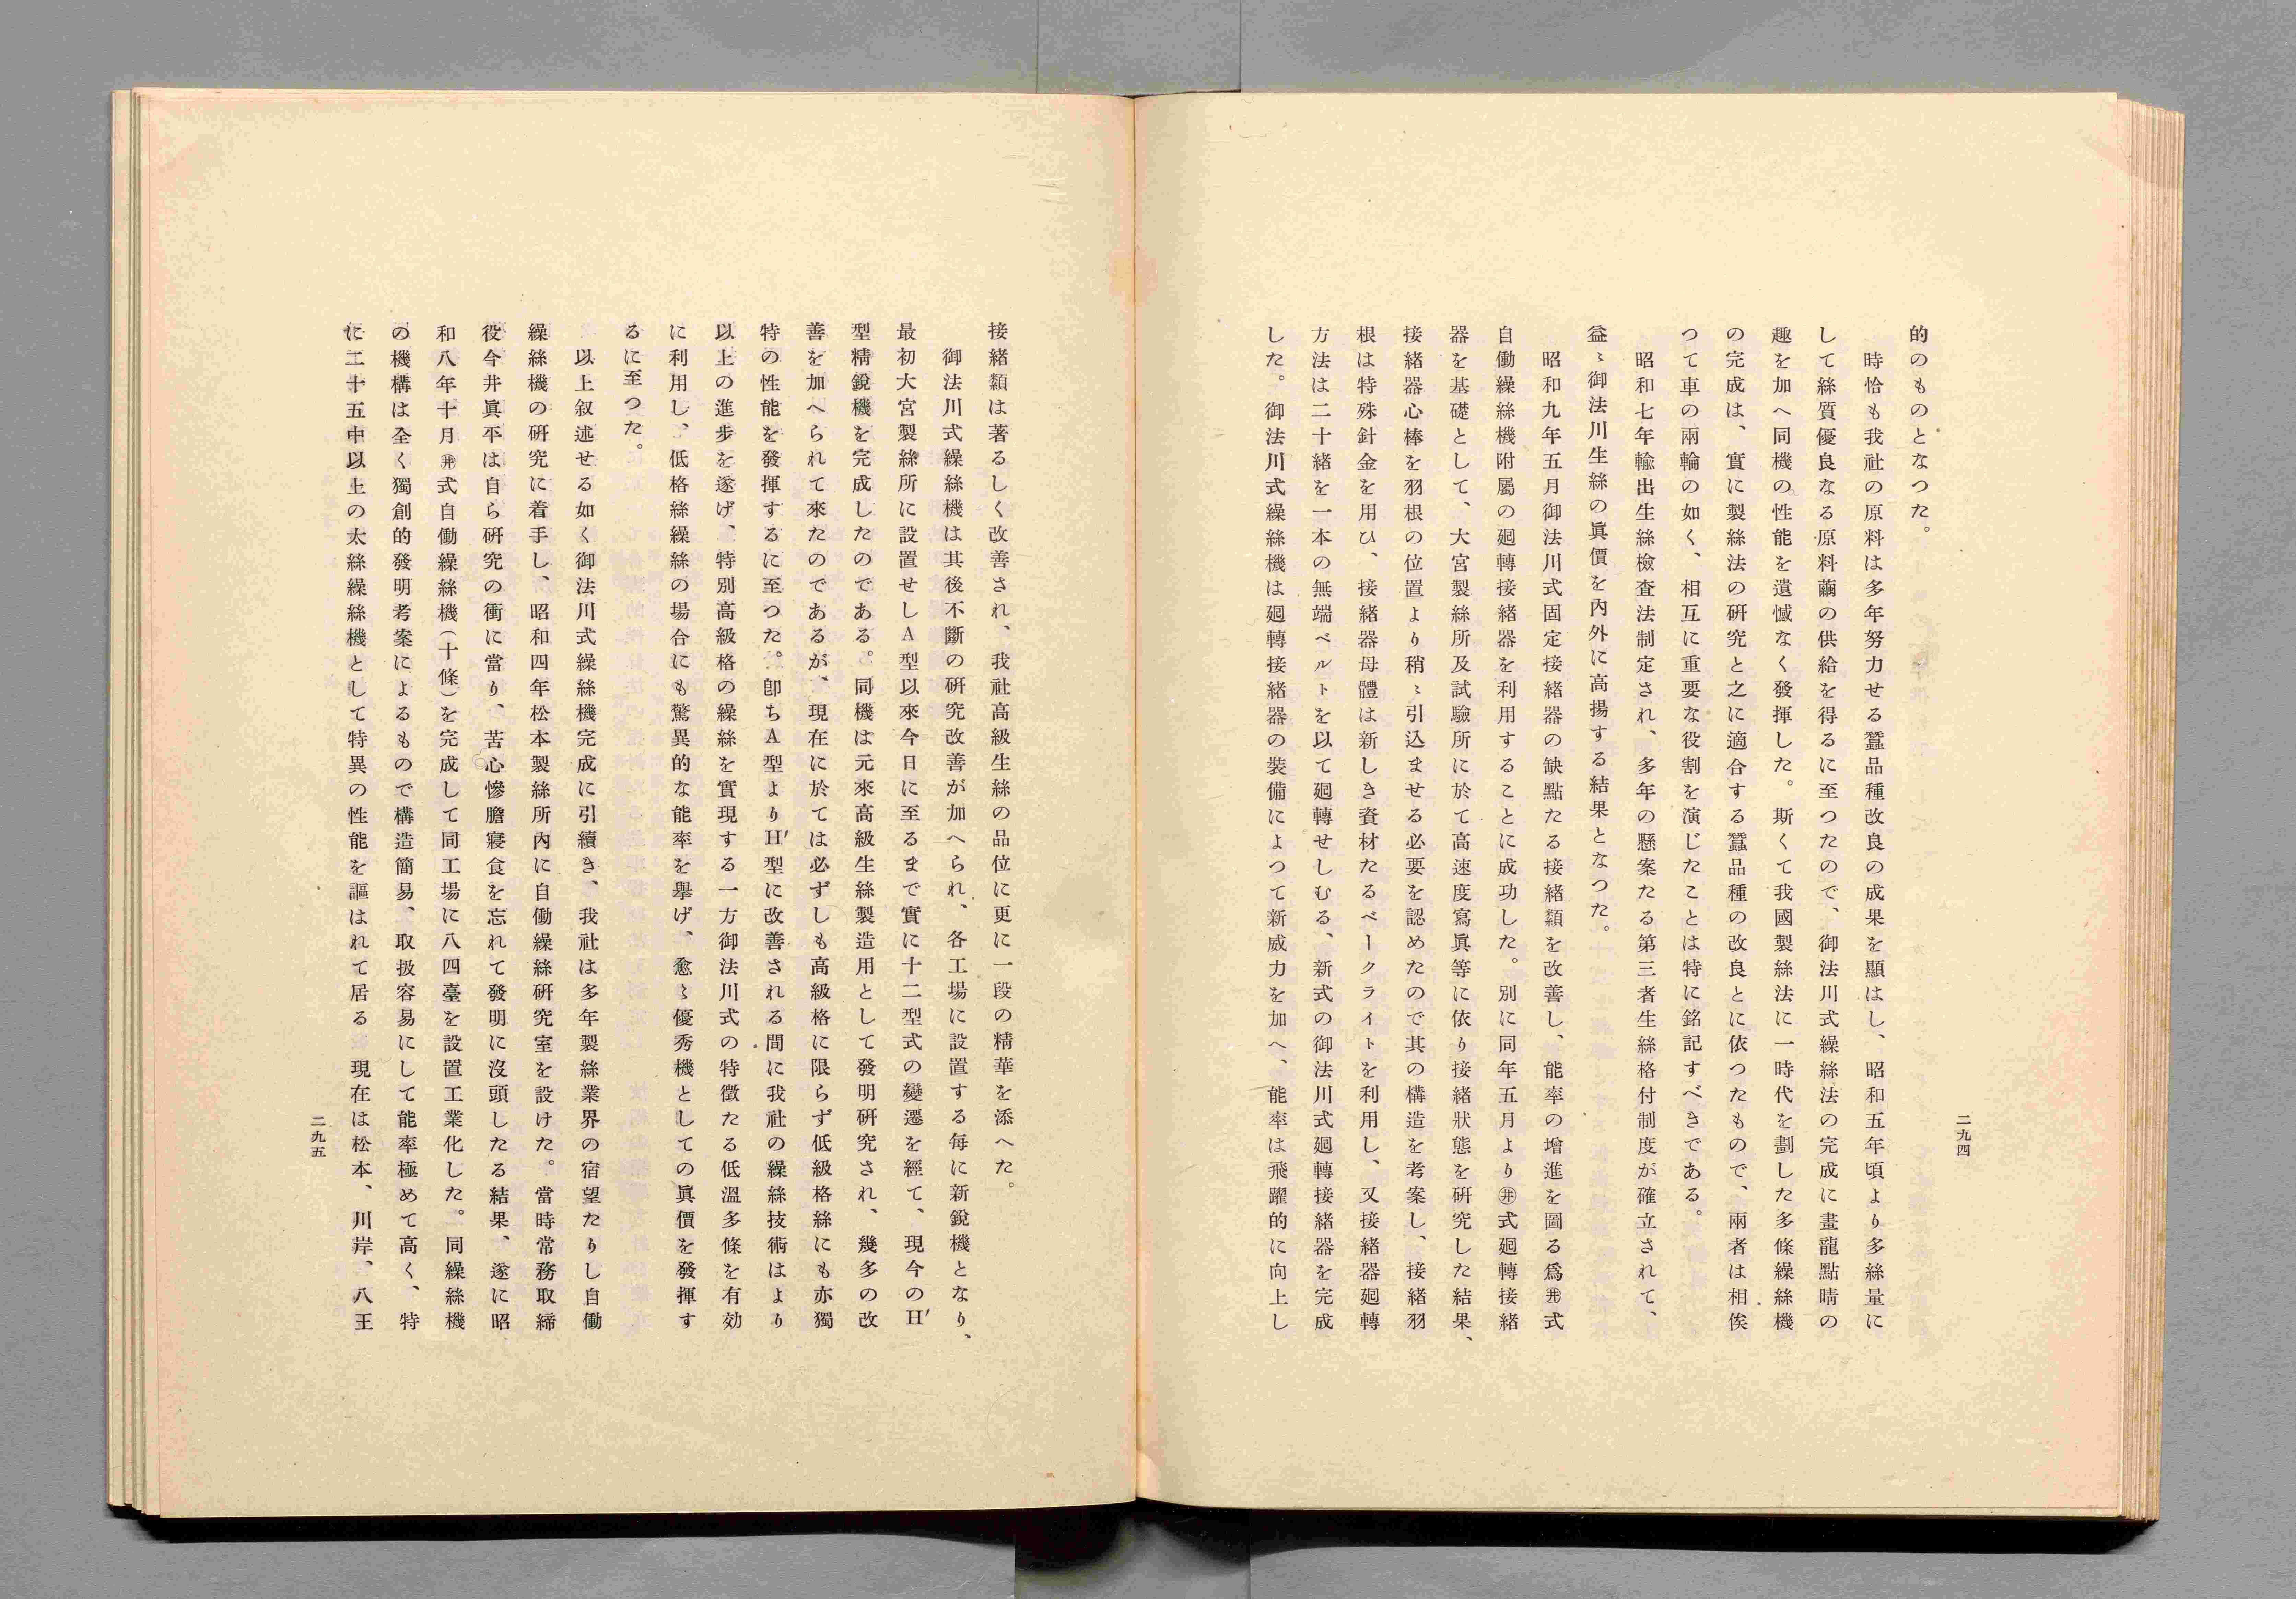 二九四
的のものとなつた。
時恰も我社の原料は多年努力せる蠶品種改良の成果を顯はし、昭和五年頃より多絲量に
して絲質優良なる原料繭の供給を得るに至つたので、御法川式繰絲法の完成に畫龍點睛の
趣を加へ同機の性能を遺憾なく發揮した。斯くて我國製絲法に一時代を劃した多條繰絲機
の完成は、實に製絲法の研究と之に適合する蠶品種の改良とに依つたもので、兩者は相俟
つて車の兩輪の如く、相互に重要な役割を演じたことは特に銘記すべきである。
昭和七年輸出生絲檢査法制定され、多年の懸案たる第三者生絲格付制度が確立されて、
益〻御法川生絲の眞價を內外に高揚する結果となつた。
昭和九年五月御法川式固定接緒器の缺點たる接緒纇を改善し、能率の增進を圖る爲㊓式
自働繰絲機附屬の廻轉接緒器を利用することに成功した。別に同年五月より式廻轉接緒
器を基礎として、大宮製絲所及試驗所に於て高速度寫眞等に依り接緒狀態を硏究した結果、
接緒器心棒を羽根の位置より稍〻引込ませる必要を認めたので其の構造を考案し、接緒羽
根は特殊針金を用ひ、接緒器母體は新しき資材たるベークライトを利用し、又接緒器廻轉
方法は二十緒を一本の無端ベルトを以て廻轉せしむる、新式の御法川式廻轉接緒器を完成
した。御法川式繰絲機は廻轉接緒器の裝備によつて新威力を加へ、能率は飛躍的に向上し
接緒纇は著るしく改善され、我社高級生絲の品位に更に一段の精華を添へた。
御法川式繰絲機は其後不斷の硏究改善が加へられ、各工場に設置する每に新銳機となり、
最初大宮製絲所に設置せしA型以來今日に至るまで實に十二型式の變遷を經て、現今のH′
型精銳機を完成したのである。同機は元來高級生絲製造用として發明硏究され、幾多の改
善を加へられて來たのであるが、現在に於ては必ずしも高級格に限らず低級格絲にも亦獨
特の性能を發揮するに至つた。卽ちA型よりH′型に改善される間に我社の繰絲技術はより
以上の進步を遂げ、特別高級格の繰絲を實現する一方御法川式の特徵たる低溫多條を有効
に利用し、低格絲繰絲の場合にも驚異的な能率を擧げ、愈〻優秀機としての眞價を發揮す
るに至つた。
以上叙述せる如く御法川式繰絲機完成に引續き、我社は多年製絲業界の宿望たりし自働
繰絲機の硏究に着手し、昭和四年松本製絲所內に自働繰絲硏究室を設けた。當時常務取締
役今井眞平は自ら硏究の衝に當り、苦心慘膽寢食を忘れて發明に沒頭したる結果、遂に昭
和八年十月式自働繰絲機（十條）を完成して同工場に八四臺を設置工業化した。同繰絲機
の機構は全く獨創的發明考案によるもので構造簡易、取扱容易にして能率極めて高く、特
に二十五中以上の太絲繰絲機として特異の性能を謳はれて居る　現在は松本、川岸、八王
二九五